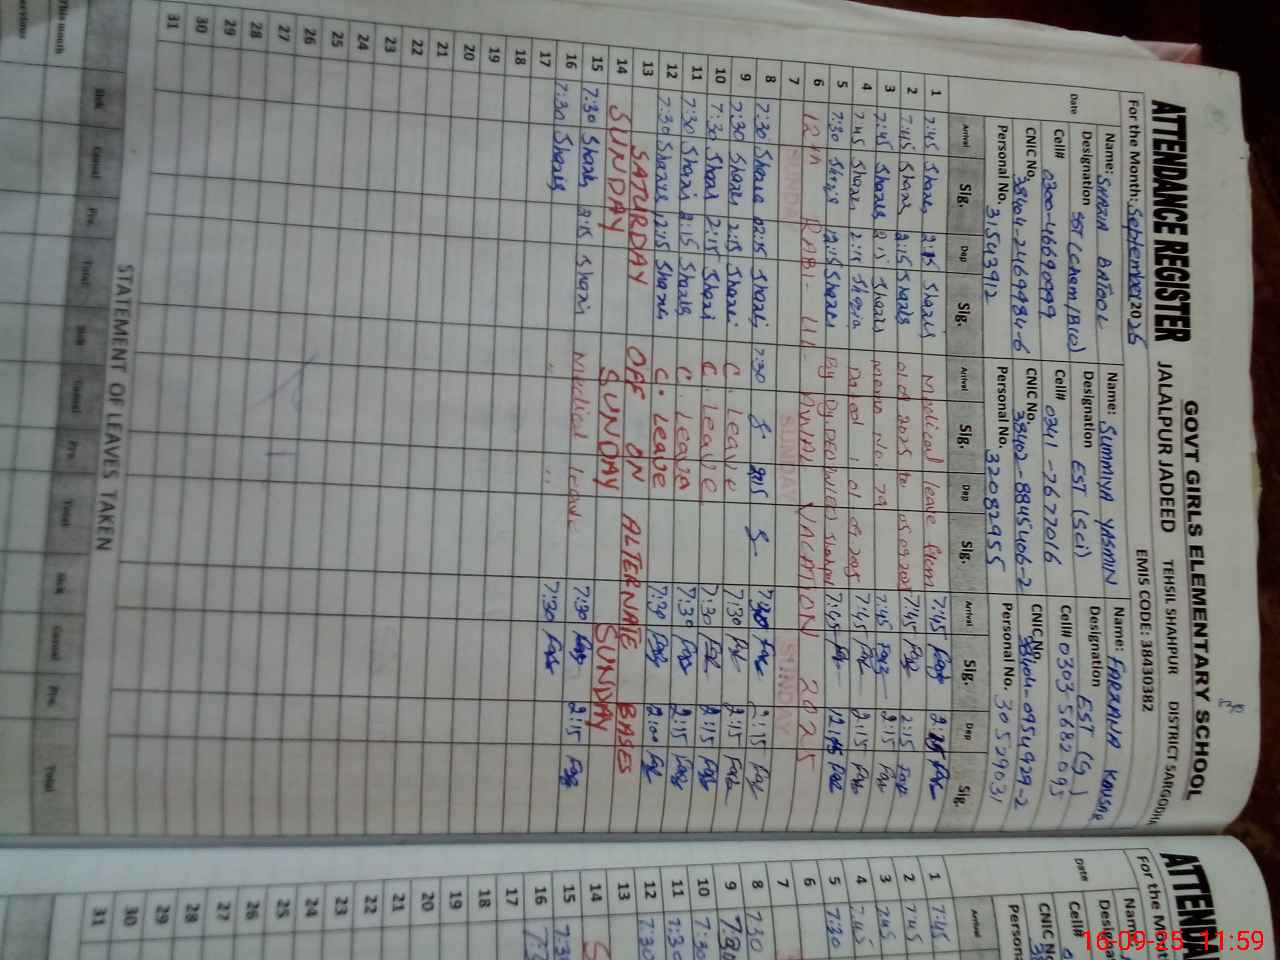 ATTENDANCE REGISTER
GOVT GIRLS ELEMENTARY SCHOOL
JALALPUR JADEED TEHSIL SHAHPUR DISTRICT SARGODHA
For the Month: September 2025
EMIS CODE: 38430382
Name: SHAZIA BATOOL
Designation SST (Chem/Bio)
Cell# 0300-46690999
CNIC No. 38404-2469984-6
Personal No. 31543912
Name: SUMMIYA YASMIN
Designation EST (Sci)
Cell# 0341-7677016
CNIC No. 38402-8845406-2
Personal No. 32082955
Name: FARZANA KAUSAR
Designation EST (G)
Cell# 0303 5682095
CNIC No. 38404-0954929-2
Personal No. 30529031
Date Arrival Sig. Dep Sig. Arrival Sig. Dep Sig. Arrival Sig. Dep Sig.
1 7:45 Shazia 2:15 Shazia Medical leave from 7:45 2:15
2 7:45 Shazia 2:15 Shazia 01.09.2025 to 05.09.2025 7:45 2:15
3 7:45 Shazia Shazia Memo No. 79 7:45 2:15
4 7:45 Shazia 2:15 Shazia Dated 01.09.2025 7:45 2:15
5 7:30 Shazia 12:15 Shazia By Dy.DEO(W.EE) Shahpur 7:45 12:15
6 12th RABI-UL-AWWAL VACATION 2025
7 SUNDAY SUNDAY SUNDAY
8 7:30 Shazia 02:15 Shazia 7:30 2:15 7:30 2:15
9 7:30 Shazia 2:15 Shazia C. Leave 7:30 2:15
10 7:30 Shazia 2:15 Shazia C. Leave 7:30 2:15
11 7:30 Shazia 2:15 Shazia C. Leave 7:30 2:15
12 7:30 Shazia 12:15 Shazia C. Leave 7:30 2:00
13 SATURDAY OFF ON ALTERNATE BASES
14 SUNDAY SUNDAY SUNDAY
15 7:30 Shazia 2:15 Shazia Medical leave 7:30 2:15
16 7:30 Shazia 7:30
17
18
19
20
21
22
23
24
25
26
27
28
29
30
31
STATEMENT OF LEAVES TAKEN
Sick Casual Pre. Total Sick Casual Pre. Total Sick Casual Pre. Total
This month
Previous
ATTENDA
For the Mo
Name
Designa
Cell#
CNIC No
Persona
Date
Arrival
1 7:45
2 7:45
3 7:45
4 7:45
5 7:30
6
7
8 7:30
9 7:30
10 7:30
11 7:30
12 7:30
13
14 S
15 7:3
16 7:3
17
18
19
20
21
22
23
24
25
26
27
28
29
30
31
16-09-25 11:59